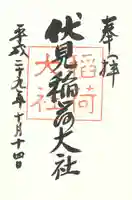 奉拝
伏見稲荷大社
平成二十九年十月十四日